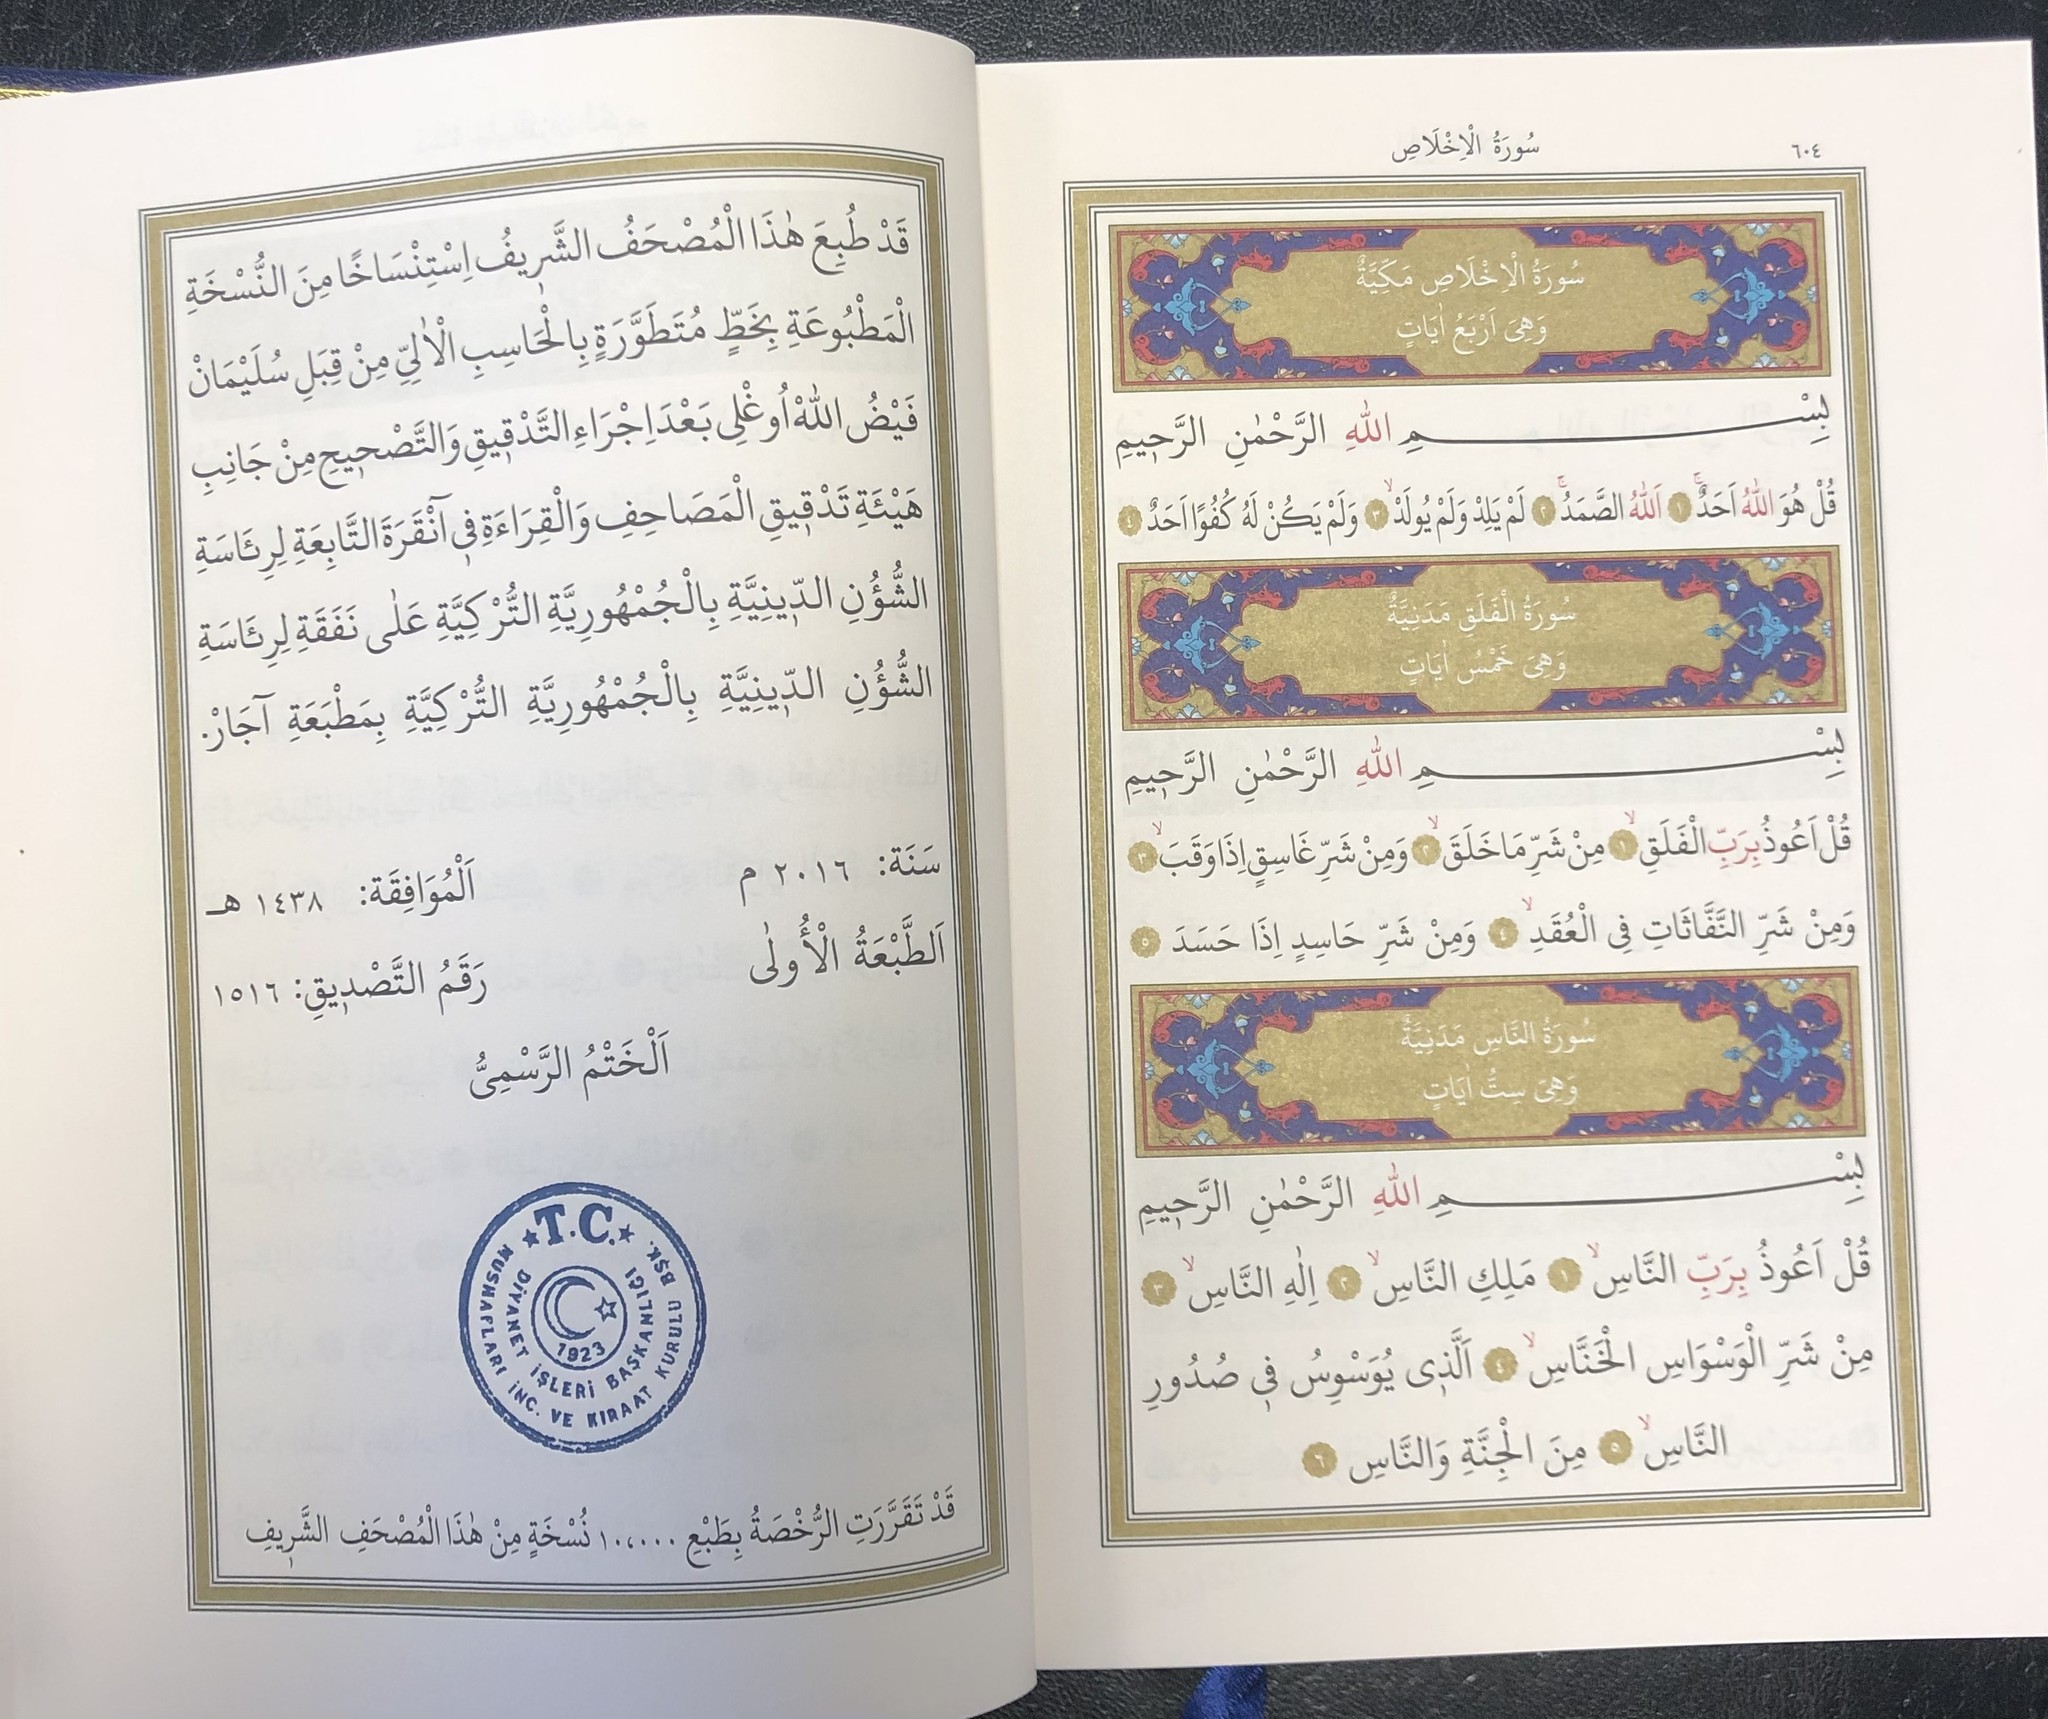 ٦٠٤
سُورَةُ الْاِخْلَاصِ
سُورَةُ الْاِخْلَاصِ مَكِّيَّةٌ
وَهِىَ اَرْبَعُ اٰيَاتٍ
بِسْــــــــــــمِ اللّٰهِ الرَّحْمٰنِ الرَّح۪يمِ
قُلْ هُوَ اللّٰهُ اَحَدٌۚ ﴿١﴾ اَللّٰهُ الصَّمَدُۚ ﴿٢﴾ لَمْ يَلِدْ وَلَمْ يُولَدْۙ ﴿٣﴾ وَلَمْ يَكُنْ لَهُ كُفُوًا اَحَدٌ ﴿٤﴾
سُورَةُ الْفَلَقِ مَدَنِيَّةٌ
وَهِىَ خَمْسُ اٰيَاتٍ
بِسْــــــــــــمِ اللّٰهِ الرَّحْمٰنِ الرَّح۪يمِ
قُلْ اَعُوذُ بِرَبِّ الْفَلَقِۙ ﴿١﴾ مِنْ شَرِّ مَا خَلَقَۙ ﴿٢﴾ وَمِنْ شَرِّ غَاسِقٍ اِذَا وَقَبَۙ ﴿٣﴾
وَمِنْ شَرِّ النَّفَّاثَاتِ فِى الْعُقَدِۙ ﴿٤﴾ وَمِنْ شَرِّ حَاسِدٍ اِذَا حَسَدَ ﴿٥﴾
سُورَةُ النَّاسِ مَدَنِيَّةٌ
وَهِىَ سِتُّ اٰيَاتٍ
بِسْــــــــــــمِ اللّٰهِ الرَّحْمٰنِ الرَّح۪يمِ
قُلْ اَعُوذُ بِرَبِّ النَّاسِۙ ﴿١﴾ مَلِكِ النَّاسِۙ ﴿٢﴾ اِلٰهِ النَّاسِۙ ﴿٣﴾
مِنْ شَرِّ الْوَسْوَاسِ الْخَنَّاسِۙ ﴿٤﴾ اَلَّذ۪ى يُوَسْوِسُ ف۪ى صُدُورِ
النَّاسِۙ ﴿٥﴾ مِنَ الْجِنَّةِ وَالنَّاسِ ﴿٦﴾
قَدْ طُبِعَ هٰذَا الْمُصْحَفُ الشَّر۪يفُ اِسْتِنْسَاخًا مِنَ النُّسْخَةِ
الْمَطْبُوعَةِ بِخَطٍّ مُتَطَوَّرَةٍ بِالْحَاسِبِ الْاٰلِيِّ مِنْ قِبَلِ سُلَيْمَانْ
فَيْضُ اللّٰهْ اُوغْلِى بَعْدَ اِجْرَاءِ التَّدْق۪يقِ وَالتَّصْح۪يحِ مِنْ جَانِبِ
هَيْئَةِ تَدْق۪يقِ الْمَصَاحِفِ وَالْقِرَاءَةِ ف۪ى آنْقَرَةَ التَّابِعَةِ لِرِئَاسَةِ
الشُّؤُنِ الدّ۪ينِيَّةِ بِالْجُمْهُورِيَّةِ التُّرْكِيَّةِ عَلٰى نَفَقَةِ لِرِئَاسَةِ
الشُّؤُنِ الدّ۪ينِيَّةِ بِالْجُمْهُورِيَّةِ التُّرْكِيَّةِ بِمَطْبَعَةِ آجَارْ.
سَنَةَ: ٢٠١٦ م اَلْمُوَافِقَة: ١٤٣٨ هـ
اَلطَّبْعَةُ الْأُولٰى رَقَمُ التَّصْد۪يقِ: ١٥١٦
اَلْخَتْمُ الرَّسْمِىُّ
T.C.
MUSHAFLARI İNC. VE KIRAAT KURULU BŞK.
DİYANET İŞLERİ BAŞKANLIĞI
1923
قَدْ تَقَرَّرَتِ الرُّخْصَةُ بِطَبْعِ ١٠،٠٠٠ نُسْخَةٍ مِنْ هٰذَا الْمُصْحَفِ الشَّر۪يفِ